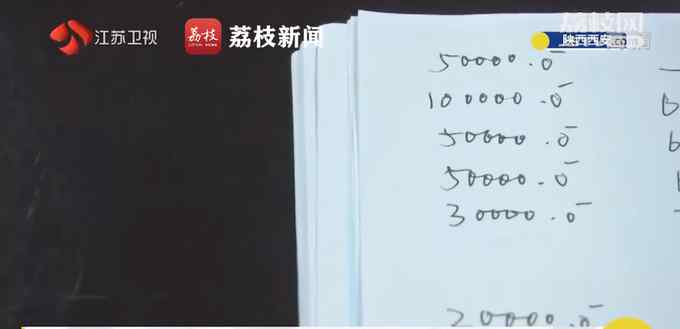 江苏卫视
荔枝
荔枝新闻
荔枝网
陕西西安
50000.0
100000.0
50000.0
50000.0
30000.0
20000.0